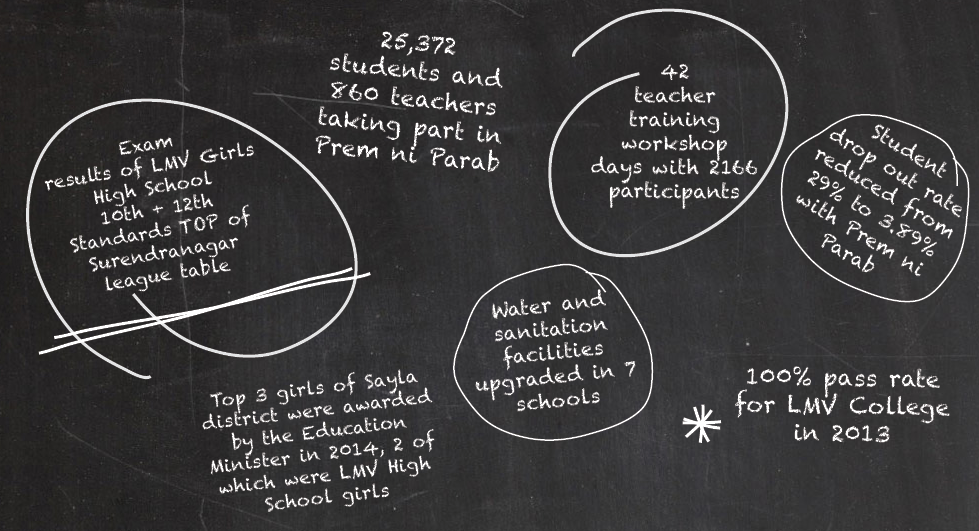 25,372
students and
860 teachers
taking part in
Prem ni Parab
42
teacher
training
workshop
days with 2166
participants
Student
drop out rate
reduced from
29% to 3.89%
with Prem ni
Parab
Exam
results of LMV Girls
High School
10th + 12th
Standards TOP of
Surendranagar
league table
Water and
sanitation
facilities
upgraded in 7
schools
Top 3 girls of Sayla
district were awarded
by the Education
Minister in 2014, 2 of
which were LMV High
School girls
100% pass rate
for LMV College
in 2013